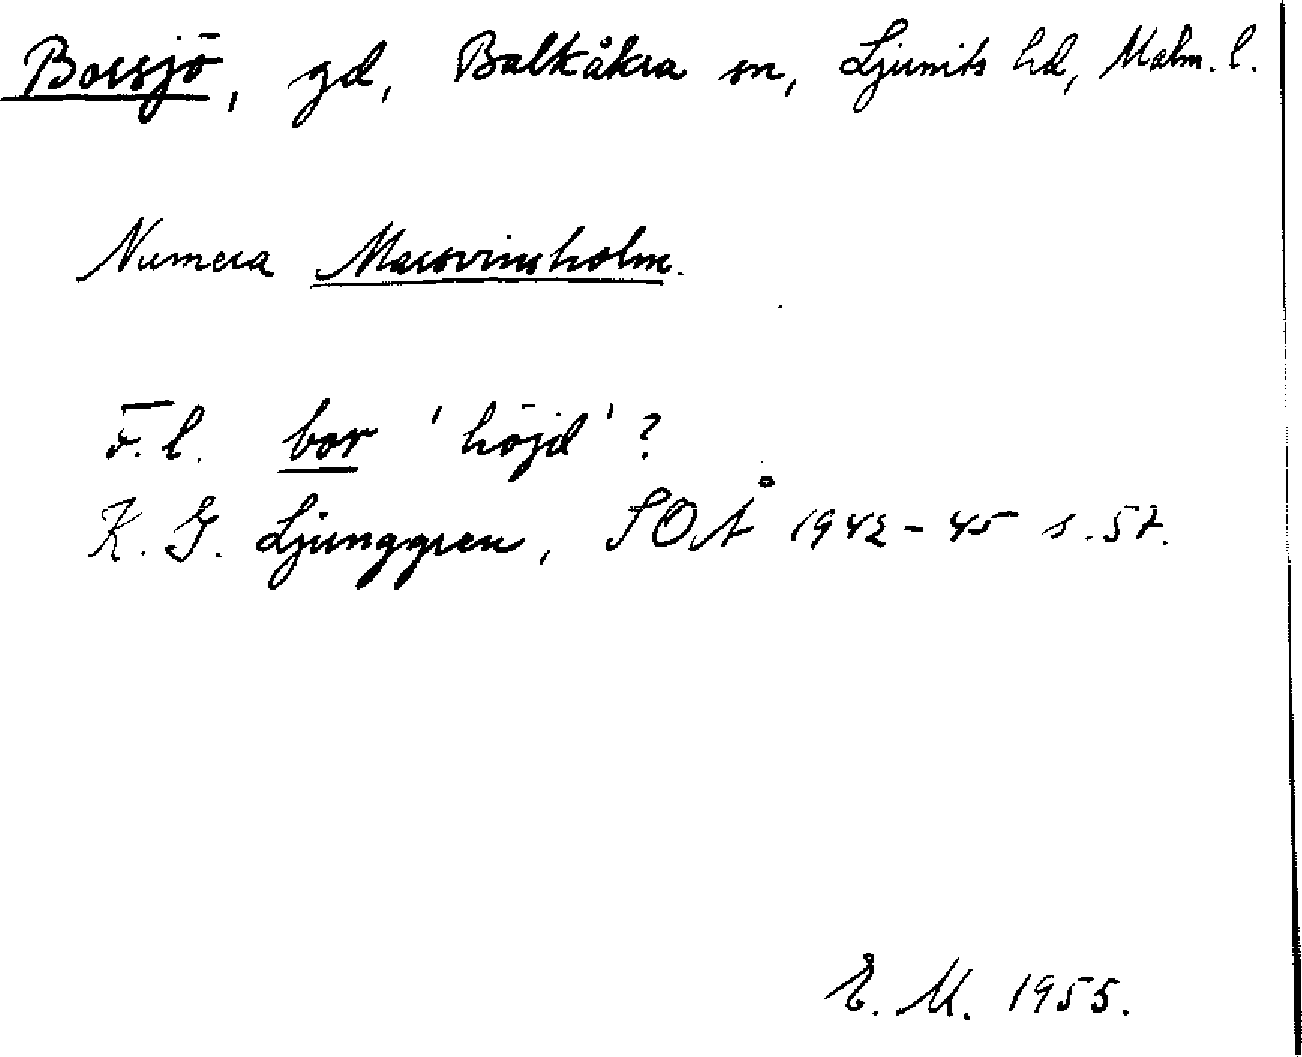 Borsjö, gd, Balkåkra sn, Ljunits hd, Malm. l.
Numera Marsvinsholm.
F.l. bor 'höjd'?
K. G. Ljunggren, SOÅ 1942-45 s. 57.
E. M. 1955.